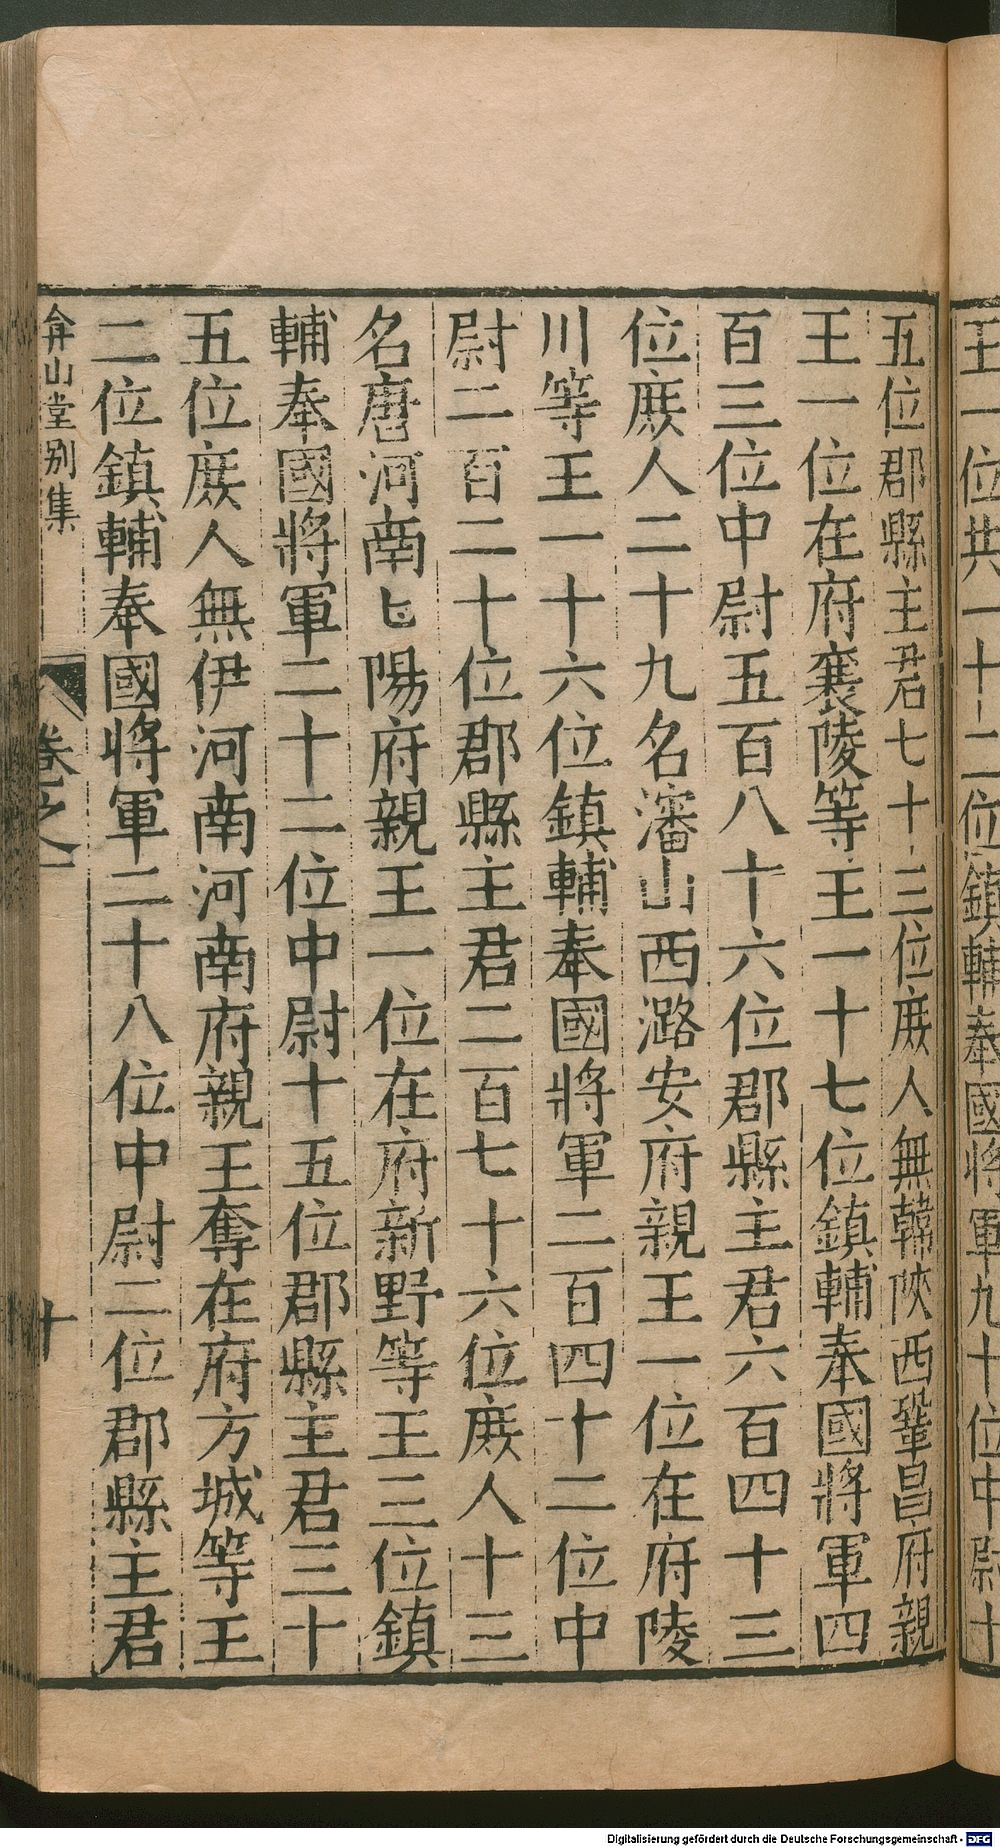 王一位共一十二位鎮輔奉國將軍九十位中尉十
五位郡縣主君七十三位庻人無韓陜西鞏昌府親
王一位在府襄陵等王一十七位鎮輔奉國將軍四
百三位中尉五百八十六位郡縣主君六百四十三
位庻人二十九名瀋山西潞安府親王一位在府陵
川等王一十六位鎮輔奉國將軍二百四十二位中
尉二百二十位郡縣主君二百七十六位庻人十三
名唐河南七陽府親王一位在府新野等王三位鎮
輔奉國將軍二十二位中尉十五位郡縣主君三十
五位庻人無伊河南河南府親王奪在府方城等王
二位鎮輔奉國將軍二十八位中尉二位郡縣主君
弇山堂别集
卷之一
十
Digitalisierung gefördert durch die Deutsche Forschungsgemeinschaft - DFG